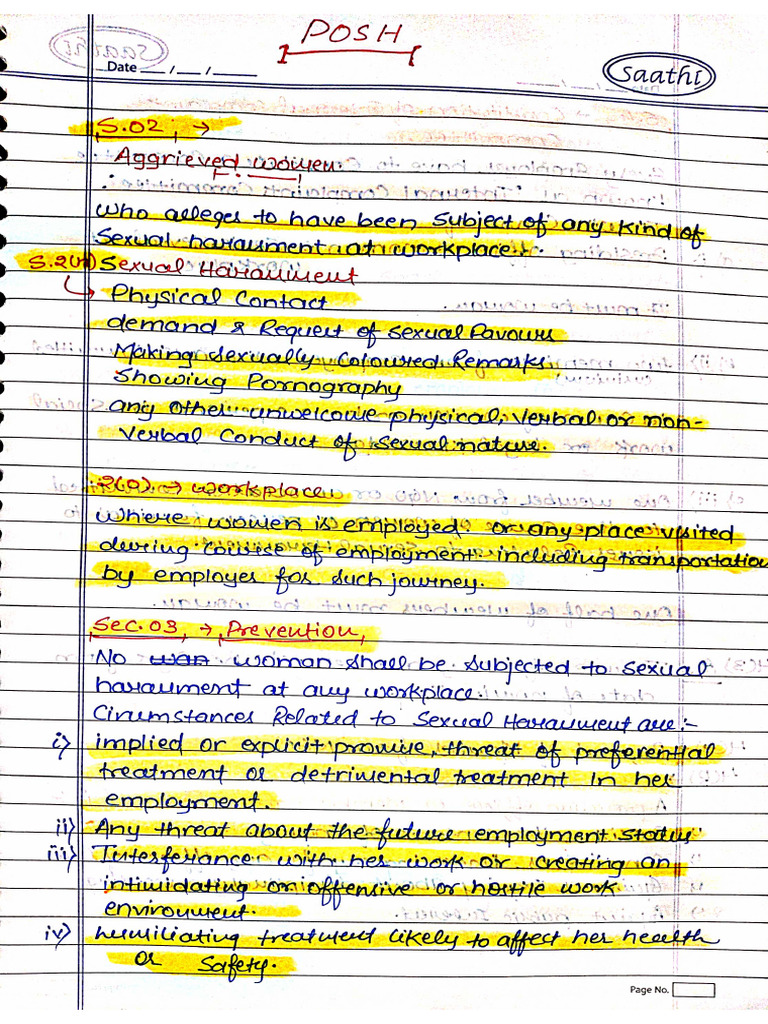 POSH
Saathi
Date __/__/____
Saathi
S.02 ; →
Aggrieved women
:
who alleges to have been subject of any kind of
Sexual harassment at workplace.
S.2(n) Sexual Harassment
Physical Contact
demand & Request of sexual favours
Making sexually coloured Remarks.
Showing Pornography
any other unwelcome physical, verbal or non-
verbal Conduct of sexual nature.
2(o) → workplace
where women is employed or any place visited
during course of employment including transportation
by employer for such journey.
Sec. 03 → Prevention,
No wan woman shall be subjected to sexual
harassment at any workplace.
Circumstances Related to Sexual Harassment are:-
i) implied or explicit promise, threat of preferential
treatment or detrimental treatment in her
employment.
ii) Any threat about the future employment status
iii) Interferiance with her work or creating an
intimidating or offensive or hostile work
environment.
iv) humiliating treatment likely to affect her health
or safety.
Page No.